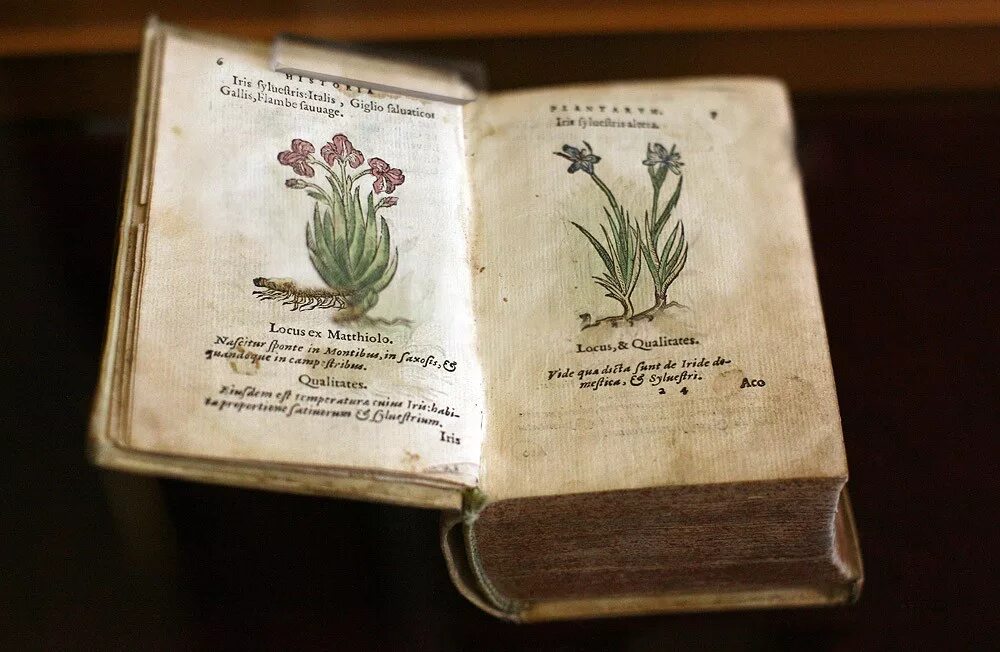 6
HISTORIA
Iris syluestris: Italis, Giglio saluatico:
Gallis, Flambe sauuage.
Locus ex Matthiolo.
Nascitur sponte in Montibus, in saxosis, &
quandoque in campestribus.
Qualitates.
Eiusdem est temperatura cuius Iris: habi-
ta proportione satiuorum & syluestrium.
Iris
PLANTARVM. 7
Iris syluestris altera.
Locus, & Qualitates.
Vide qua dicta sunt de Iride do-
mestica, & Syluestri.
2 4
Aco